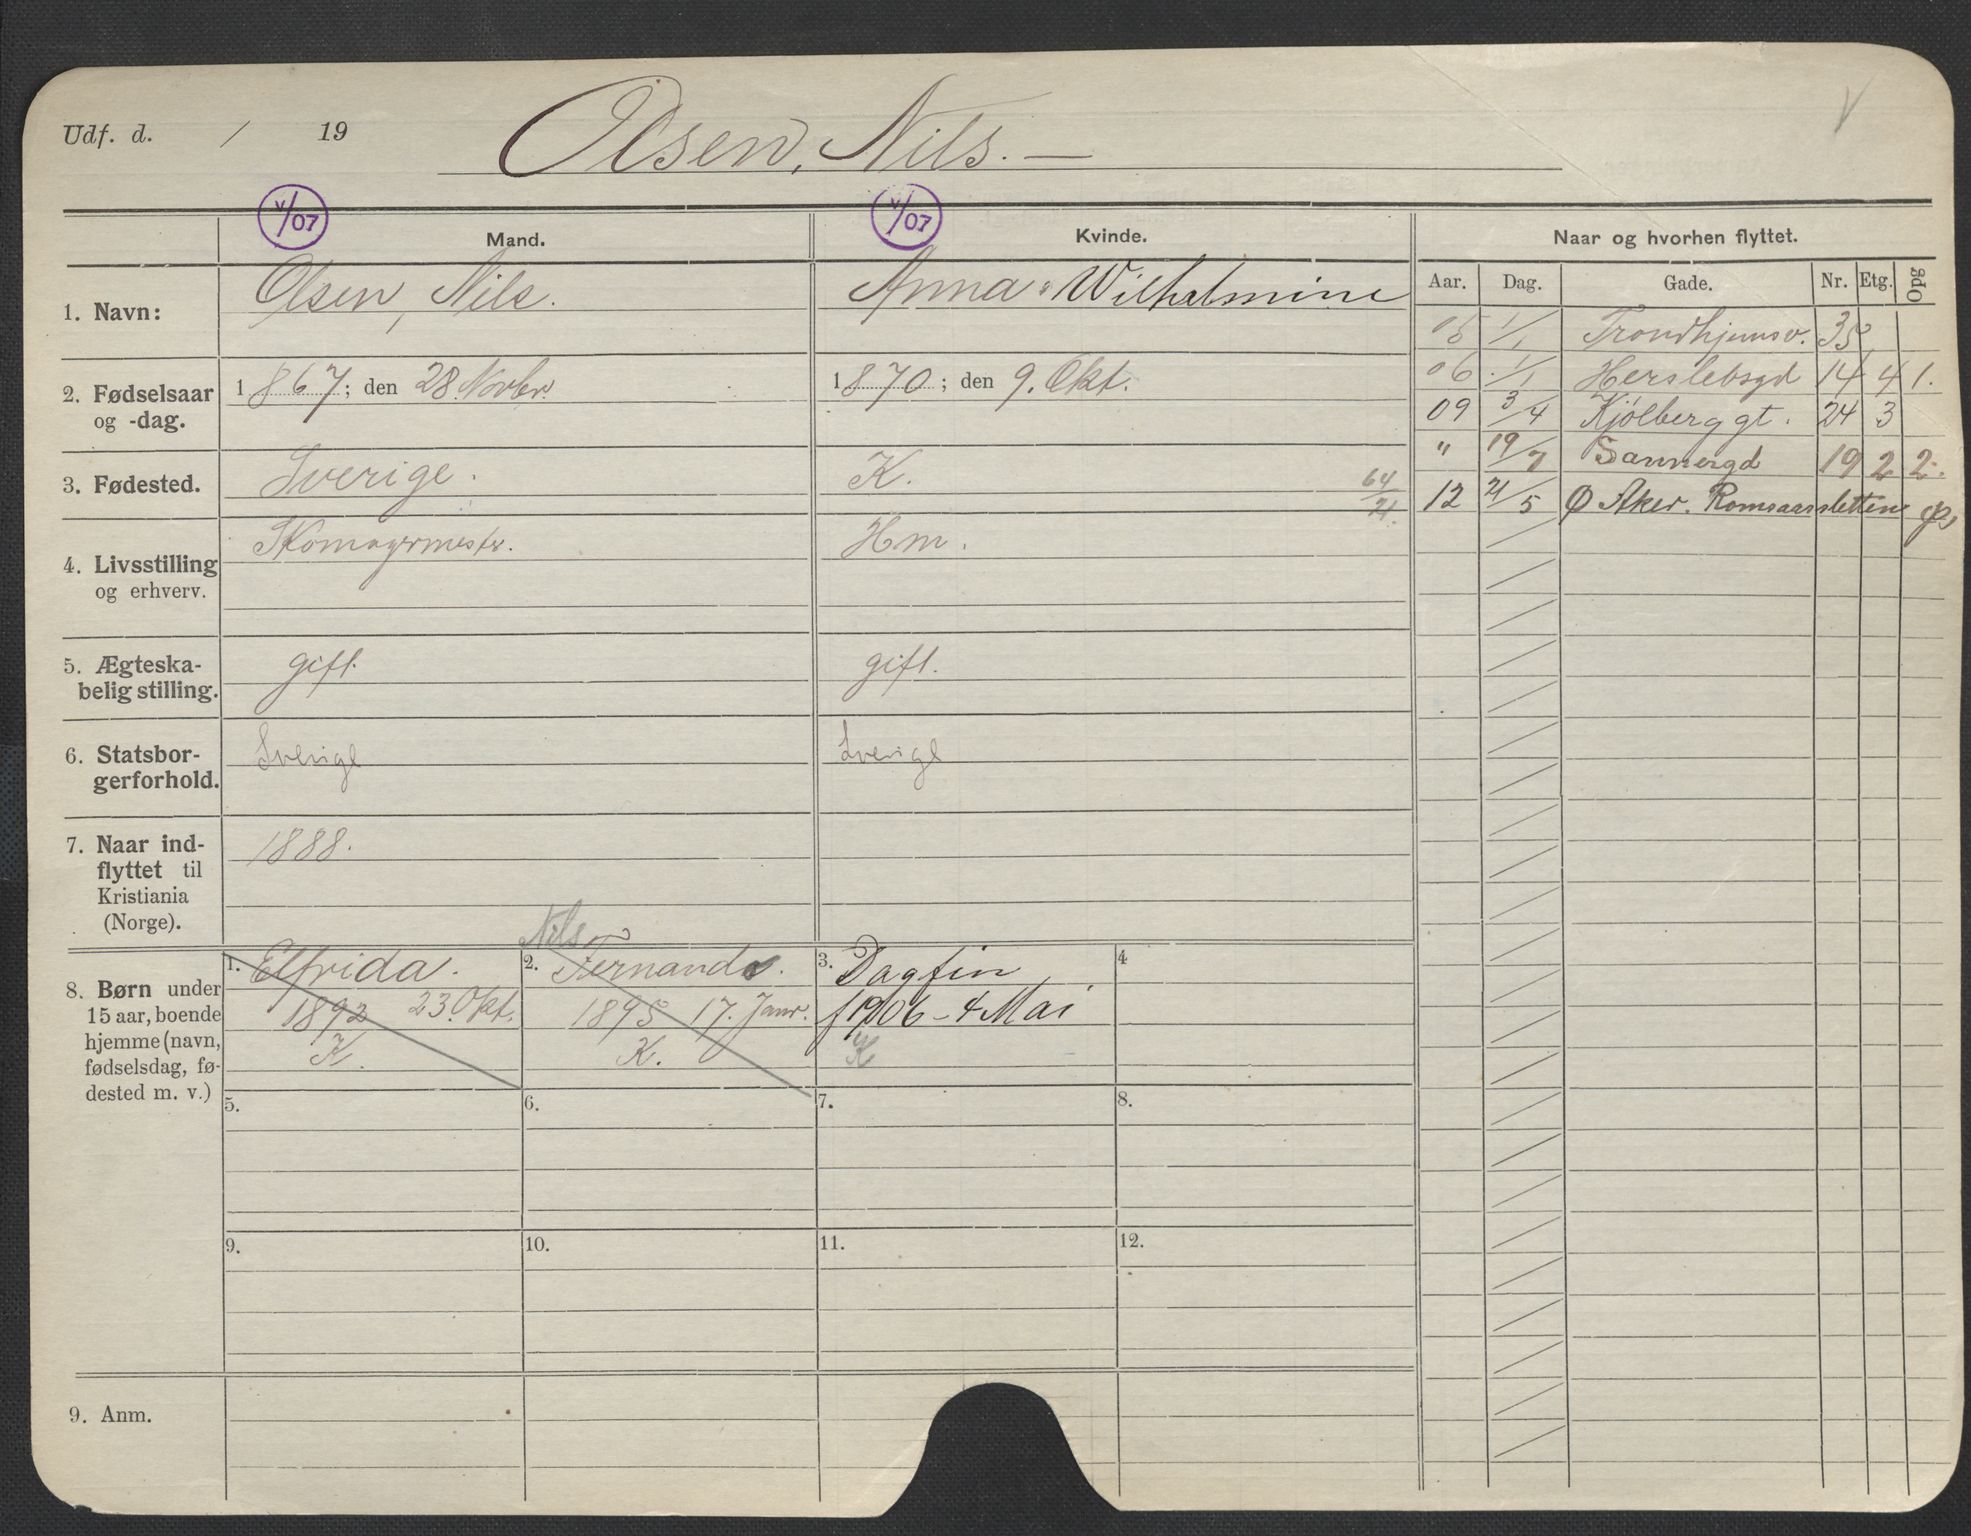 Udf. d. / 19
Olsen, Nils. —
V/07
V/07
Mand.
Kvinde.
Naar og hvorhen flyttet.
1. Navn:
Olsen, Nils.
Anna Wilhelmine
Aar. Dag. Gade. Nr. Etg. Opg
05 1/1 Trondhjemsv. 35
06 1/1 Herslebsgd 14 4 1.
09 3/4 Kjølberggt. 24 3
" 19/7 Sannergd 19 2 2.
12 21/5 Ø Aker. Romsaassletten
2. Fødselsaar
og -dag.
1867; den 28. Novbr.
1870; den 9. Okt.
3. Fødested.
Sverige.
K.
64
21.
4. Livsstilling
og erhverv.
Skomagermestr.
Hm.
5. Ægteska-
belig stilling.
gift.
gift.
6. Statsbor-
gerforhold.
Sverige
Sverige
7. Naar ind-
flyttet til
Kristiania
(Norge).
1888.
8. Børn under
15 aar, boende
hjemme (navn,
fødselsdag, fø-
dested m. v.)
1. Elfrida.
1892 23. Okt.
K.
Nils
2. Fernando.
1895 17. Janr.
K.
3. Dagfin
f 1906 - 4 Mai
K
4
5.
6.
7.
8.
9.
10.
11.
12.
9. Anm.